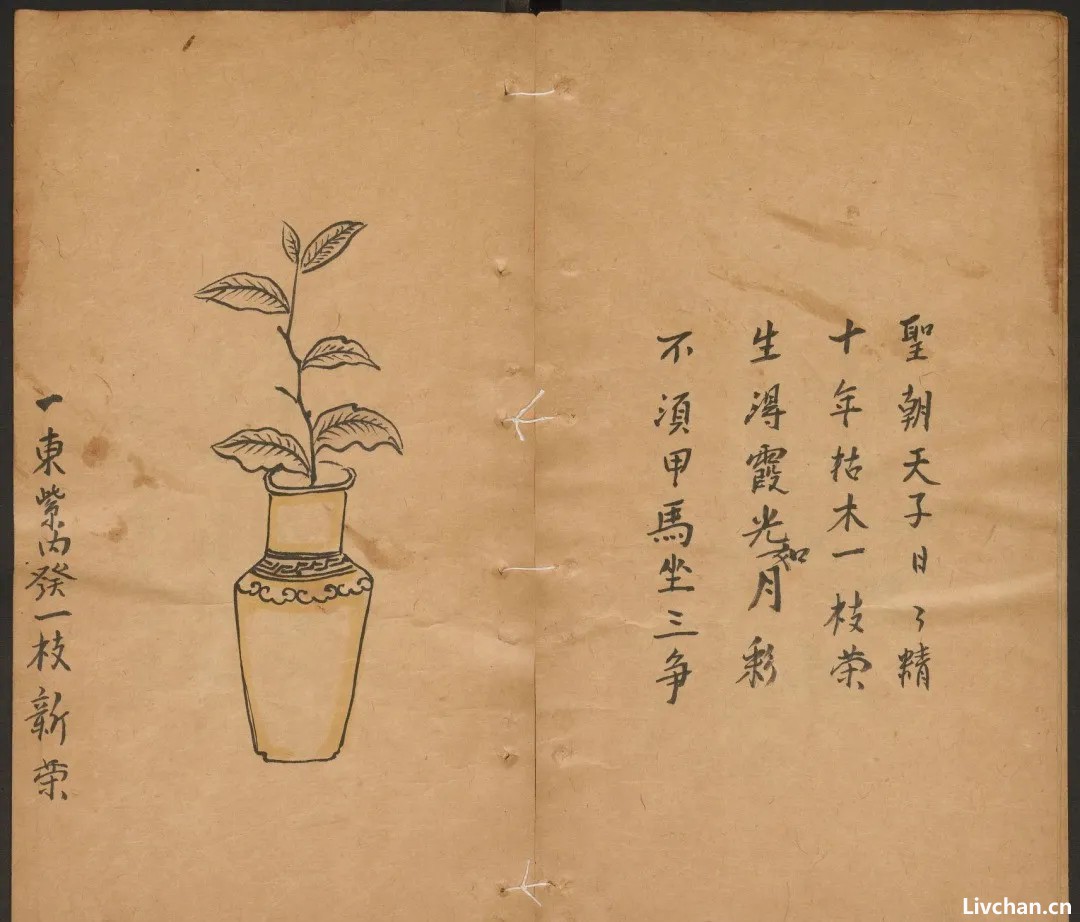 聖朝天子日々精
十年枯木一枝荣
生得霞光和月彩
不須甲馬坐三争
一東紫内發一枝新荣
Livchan.cn